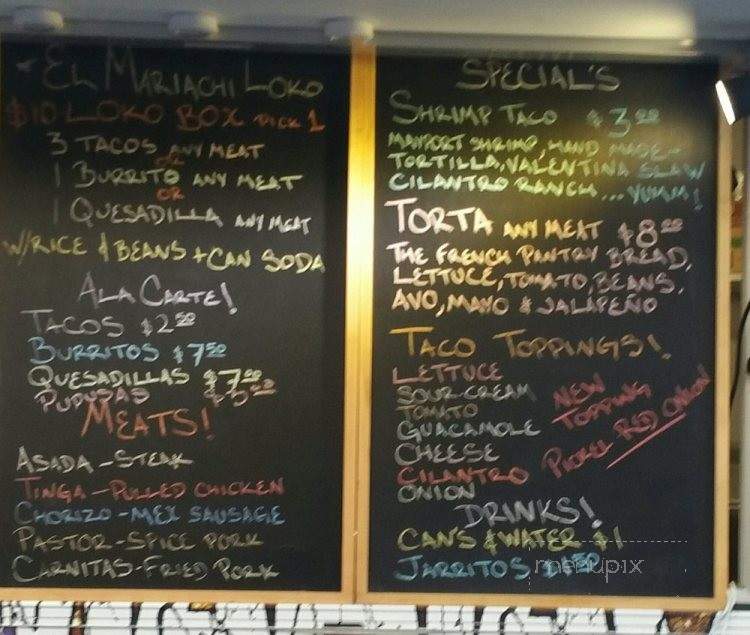 El Mariachi Loko
$10 Loko Box Pick 1
3 Tacos any meat
or
1 Burrito any meat
or
1 Quesadilla any meat
w/rice & beans + can soda
Ala Carte!
Tacos $2.50
Burritos $7.50
Quesadillas $7.00
Pupusas
Meats!
Asada - Steak
Tinga - Pulled Chicken
Chorizo - Mex Sausage
Pastor - Spice Pork
Carnitas - Fried Pork
Special's
Shrimp Taco $3.50
Mayport shrimp, hand made
tortilla, Valentina slaw
cilantro ranch ... yumm!
Torta any meat $8.00
The French Pantry bread,
lettuce, tomato, beans,
avo, mayo & jalapeño
Taco Toppings!
Lettuce
Sour cream
Tomato
Guacamole
Cheese
Cilantro
Onion
New
Topping
Red Onion
Drinks!
Can's & water $1
Jarritos
menupix